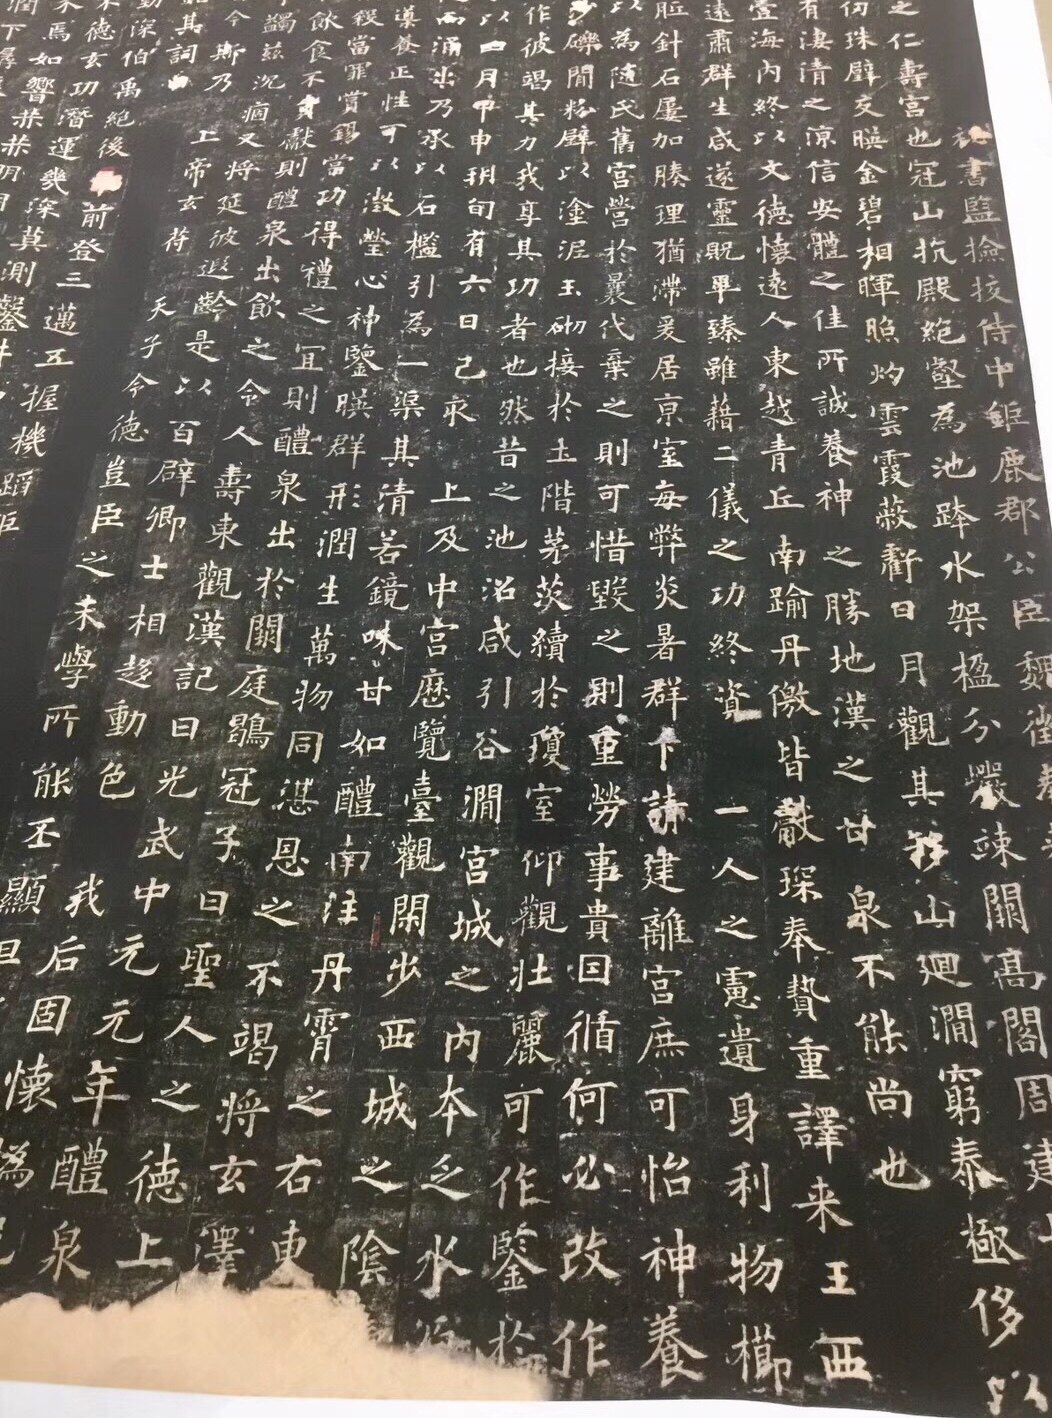 秘書監撿挍侍中鉅鹿郡公臣魏徵奉
之仁壽宮也冠山抗殿絕壑為池跨水架楹分巖竦闕高閣周建
仞珠璧交暎金碧相暉照灼雲霞蔽虧日月觀其移山迴澗窮泰極侈以
有淒清之涼信安體之佳所誠養神之勝地漢之甘泉不能尚也
壹海內終以文德懷遠人東越青丘南踰丹儌皆獻琛奉贄重譯来王西
遠肅群生咸遂靈貺畢臻雖藉二儀之功終資一人之慮遺身利物櫛
胝針石屢加腠理猶滯爰居京室每弊炎暑群下請建離宮庶可怡神養
以為隨氏舊宮營於曩代棄之則可惜毀之則重勞事貴因循何必改作
沙礫閒粉壁以塗泥玉砌接於土階茅茨續於瓊室仰觀壯麗可作鑒於
作彼竭其力我享其功者也然昔之池沼咸引谷澗宮城之內本乏水
以四月甲申朔旬有六日己亥上及中宮歷覽臺觀閑步西城之陰
而涌出乃承以石檻引為一渠其清若鏡味甘如醴南注丹霄之右東
導養正性可以澂瑩心神鑒暎群形潤生萬物同湛恩之不竭將玄澤
殺當罪賞錫當功得禮之宜則醴泉出於闕庭鶡冠子曰聖人之德上
飲食不貢獻則醴泉出飲之令人壽東觀漢記曰光武中元元年醴泉
蠲茲沉痼又將延彼遐齡是以百辟卿士相趍動色我后固懷撝挹
令斯乃上帝玄符天子令德豈臣之末學所能丕顯但
其詞曰
勳深伯禹絕後前登三邁五握機蹈矩
德玄功潛運幾深莫測鑿井
焉如響